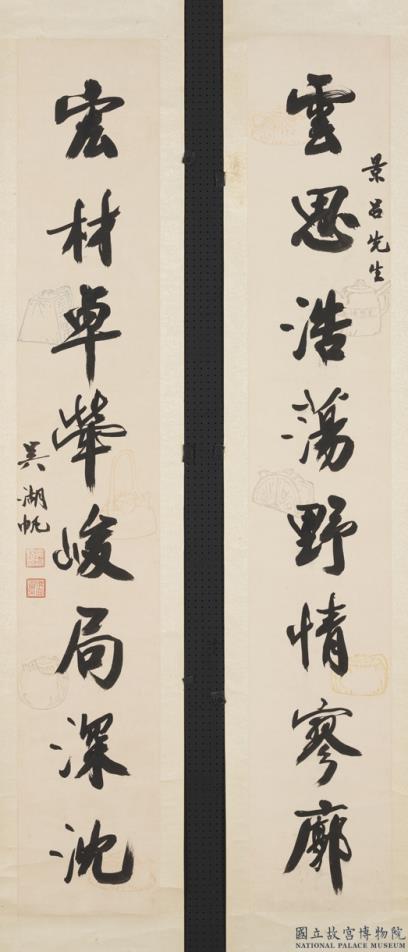 景呂先生
雲思浩蕩野情寥廓
宏材卓犖峻局深沈
吳湖帆
國立故宮博物院
NATIONAL PALACE MUSEUM